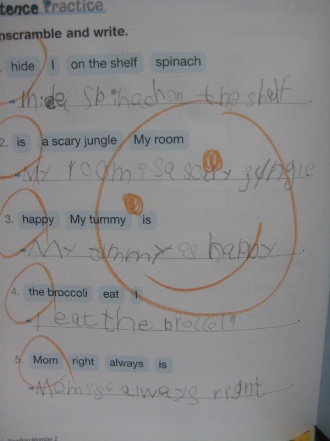 tence Practice
nscramble and write.
hide I on the shelf spinach
I hide spinach on the shelf.
2. is a scary jungle My room
My room is a scary jungle
3. happy My tummy is
My tummy is happy
4. the broccoli eat I
I eat the broccoli
5. Mom right always is
Mom is always right